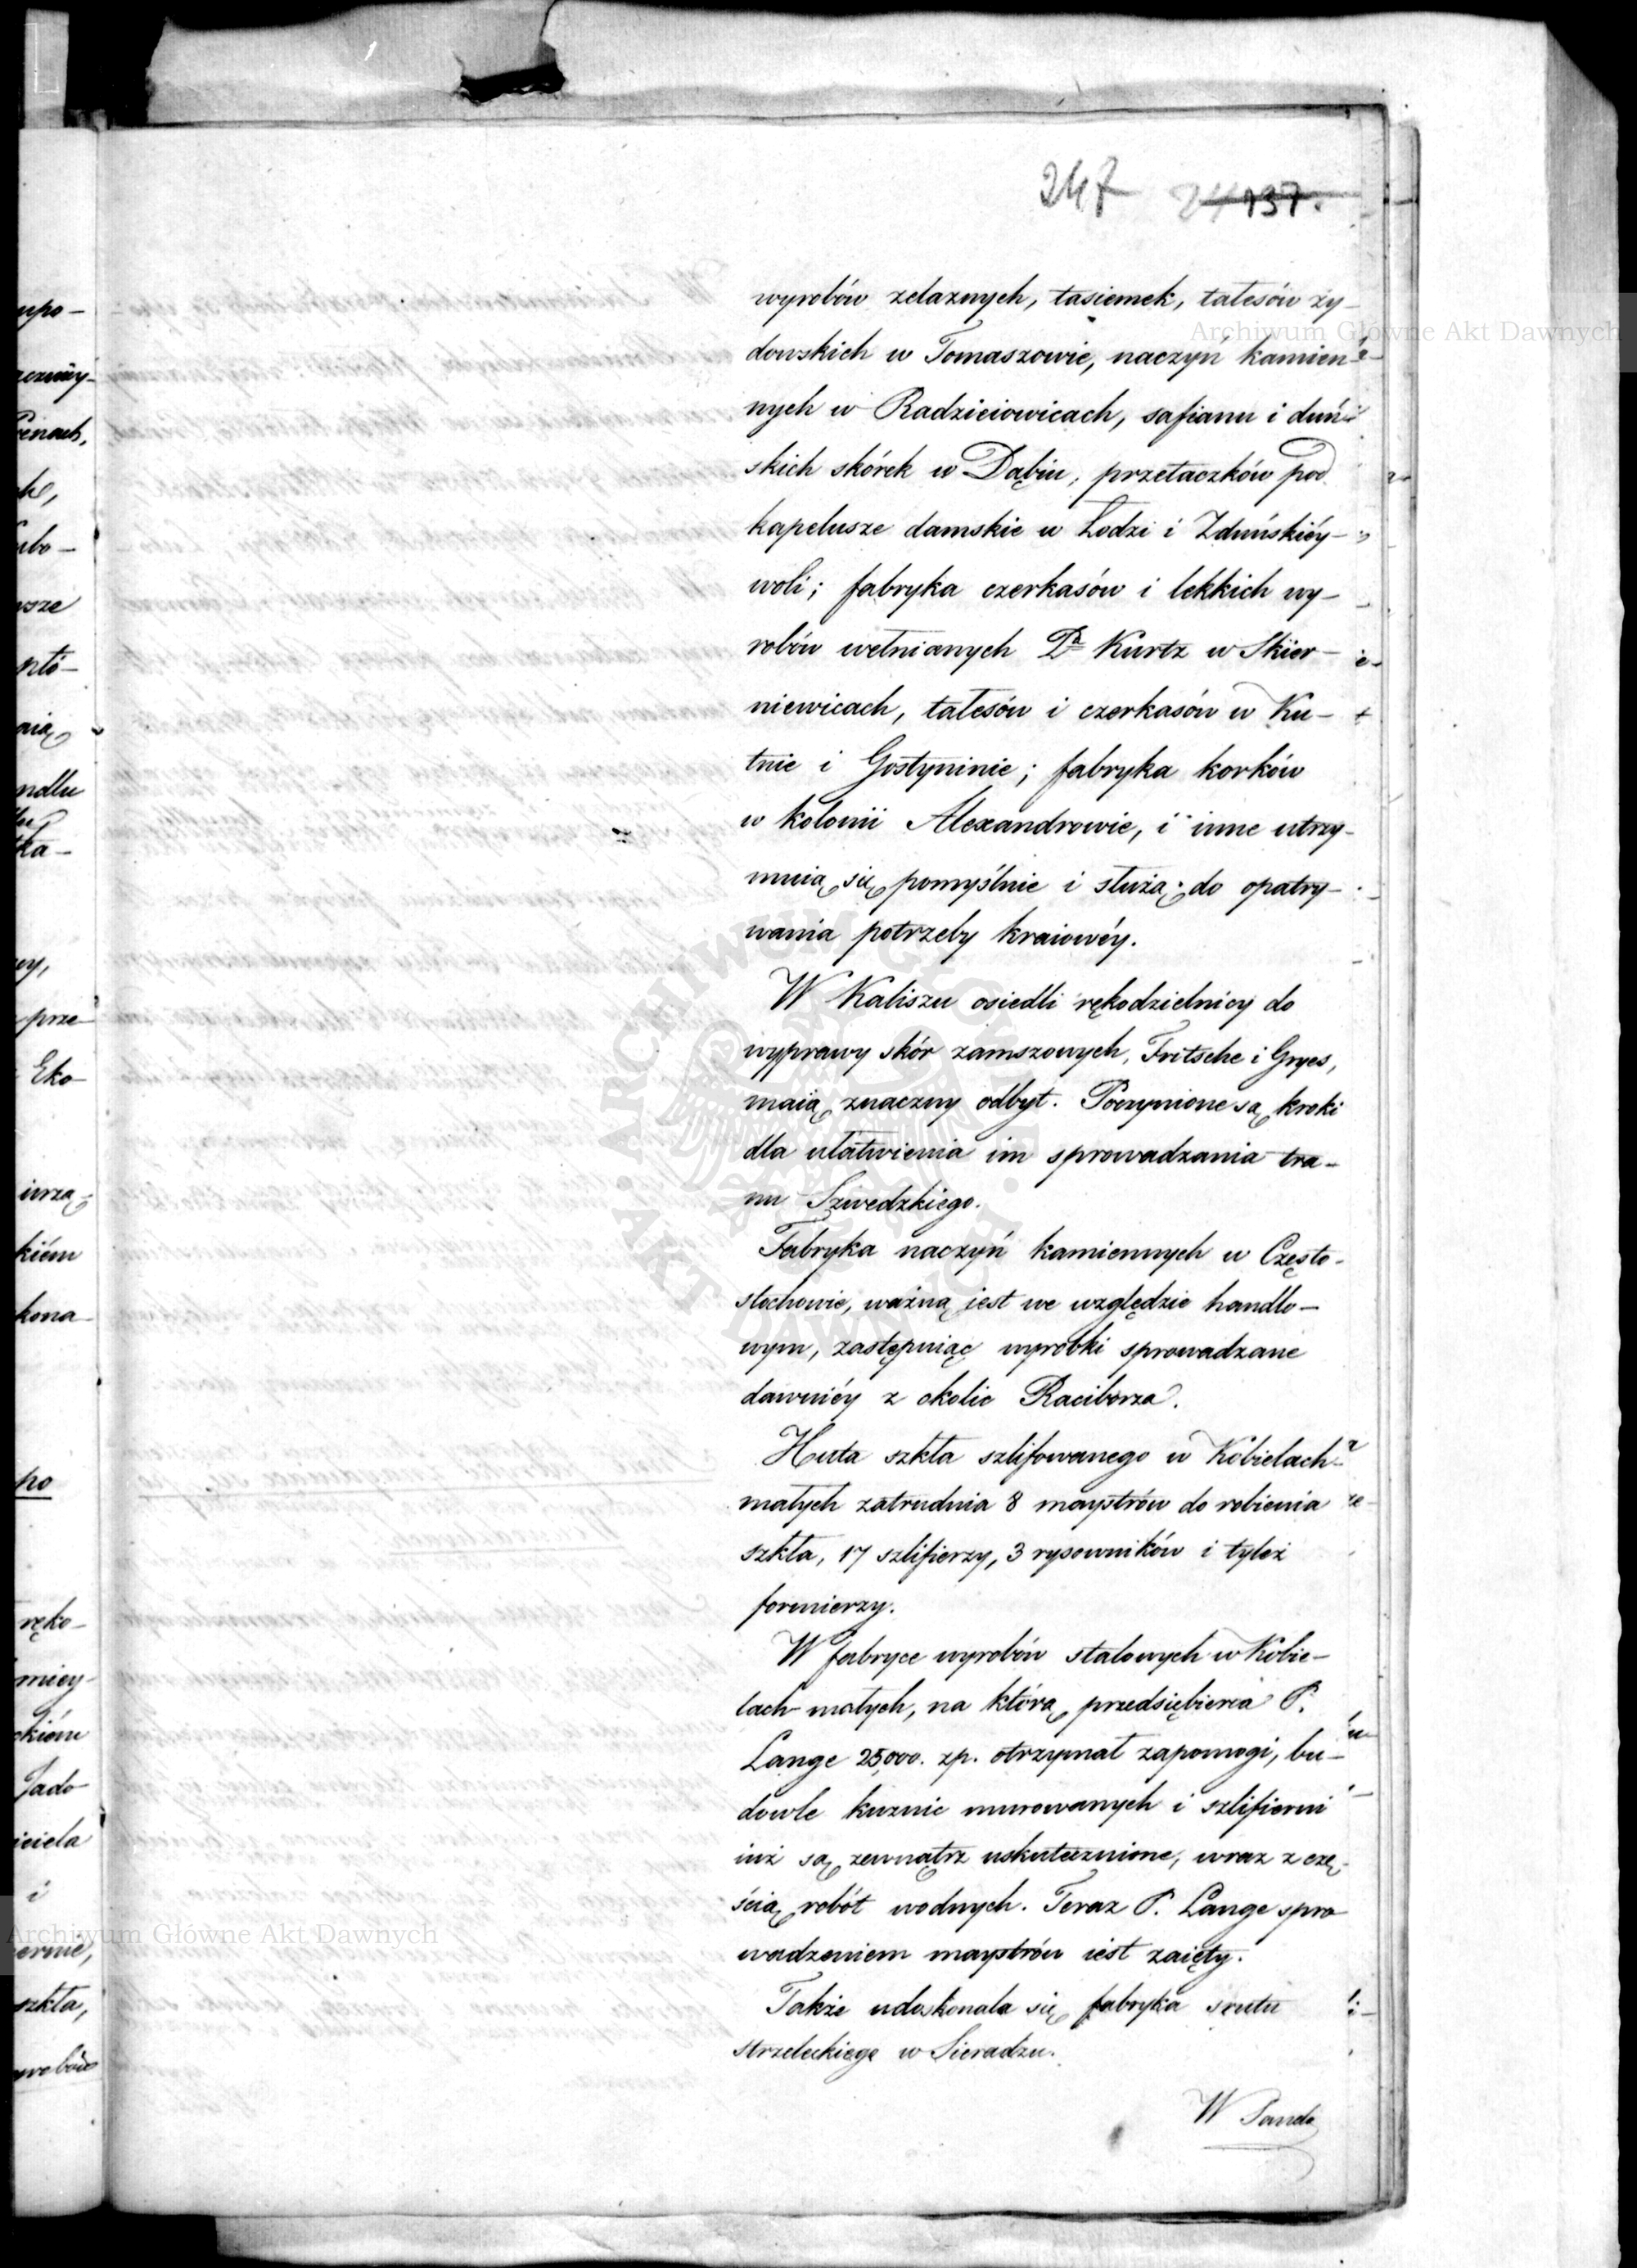 247 137.
wyrobów zelaznych, tasiemek, tałesów ży-
dowskich w Tomaszowie, naczyń kamien
nych w Radzieiowicach, safianu i duń
skich skórek w Dąbiu, przetaczków pod
kapelusze damskie w Łodzi i Zduńskiéy-
woli; fabryka czerkasów i lekkich wy-
robów wełnianych Pa Kurtz w Skier-
niewicach, tałesów i czerkasów w Ku-
tnie i Gostyninie; fabryka korków
w kolonii Alexandrowie, i inne utrzy-
muią się pomyślnie i służą do opatry-
wania potrzeby kraiowéy.
W Kaliszu osiedli rękodzielnicy do
wyprawy skór zamszowych, Fritsche i Gryes,
maią znaczny odbyt. Poczynione są kroki
dla ułatwienia im sprowadzania tra-
nu Szwedzkiego.
Fabryka naczyń kamiennych w Często-
stochowie, ważną jest we względzie handlo-
wym, zastępuiąc wyrobki sprowadzane
dawniéy z okolic Raciborza.
Huta szkła szlifowanego w Kobielach
małych zatrudnia 8 maystrów do robienia
szkła, 17 szlifierzy, 3 rysowników i tyleż
formierzy.
W fabryce wyrobów stalowych w Kobie-
lach małych, na którą przedsiębierca P.
Lange 25,000. zp. otrzymał zapomogi, bu-
dowle kuznic murowanych i szlifierni
iuż są zewnątrz uskutecznione, wraz z czę-
ścią robót wodnych. Teraz P. Lange spro
wadzeniem maystrów iest zaięty.
Także udoskonala się fabryka srutu
strzeleckiego w Sieradzu.
W
Archiwum Główne Akt Dawnych
Archiwum Główne Akt Dawnych
ARCHIWUM GŁÓWNE AKT DAWNYCH
upo-
ubo-
ndlu
prze
Eko-
kiém
kona-
po
ręko-
Jado-
i
szkła,